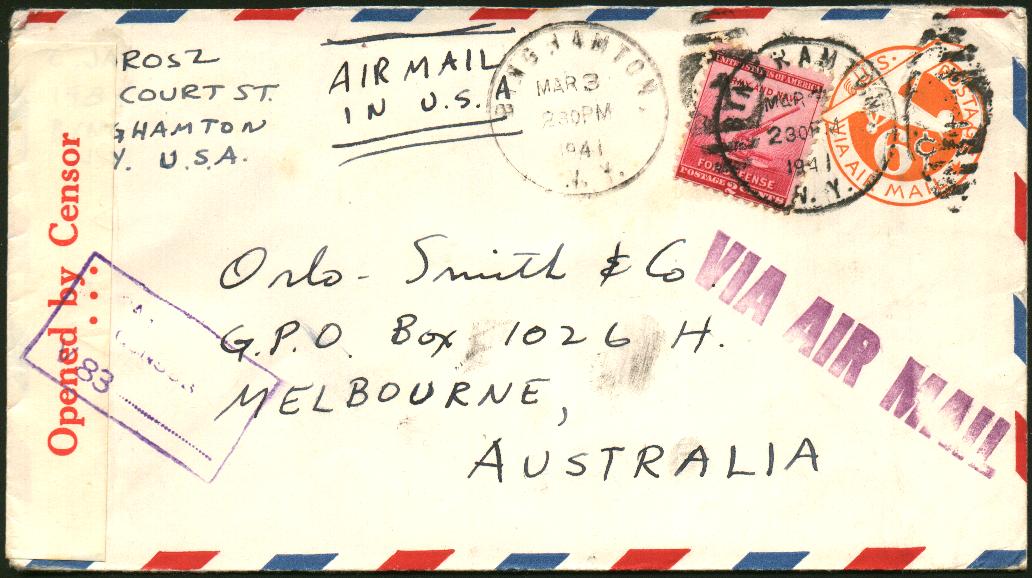 ROSZ
COURT ST.
GHAMTON
Y. U.S.A.
AIR MAIL
IN U.S.A.
BINGHAMTON,
MAR 3
230PM
1941
N.Y.
UNITED STATES OF AMERICA
ARMY AND NAVY
FOR DEFENSE
POSTAGE 2 CENTS
BINGHAMTON
MAR
230PM
1941
N.Y.
U.S. POSTAGE
6c
VIA AIR MAIL
Opened by Censor
CENSOR
83
VIA AIR MAIL
Orlo-Smith & Co
G.P.O. Box 1026 H.
MELBOURNE,
AUSTRALIA